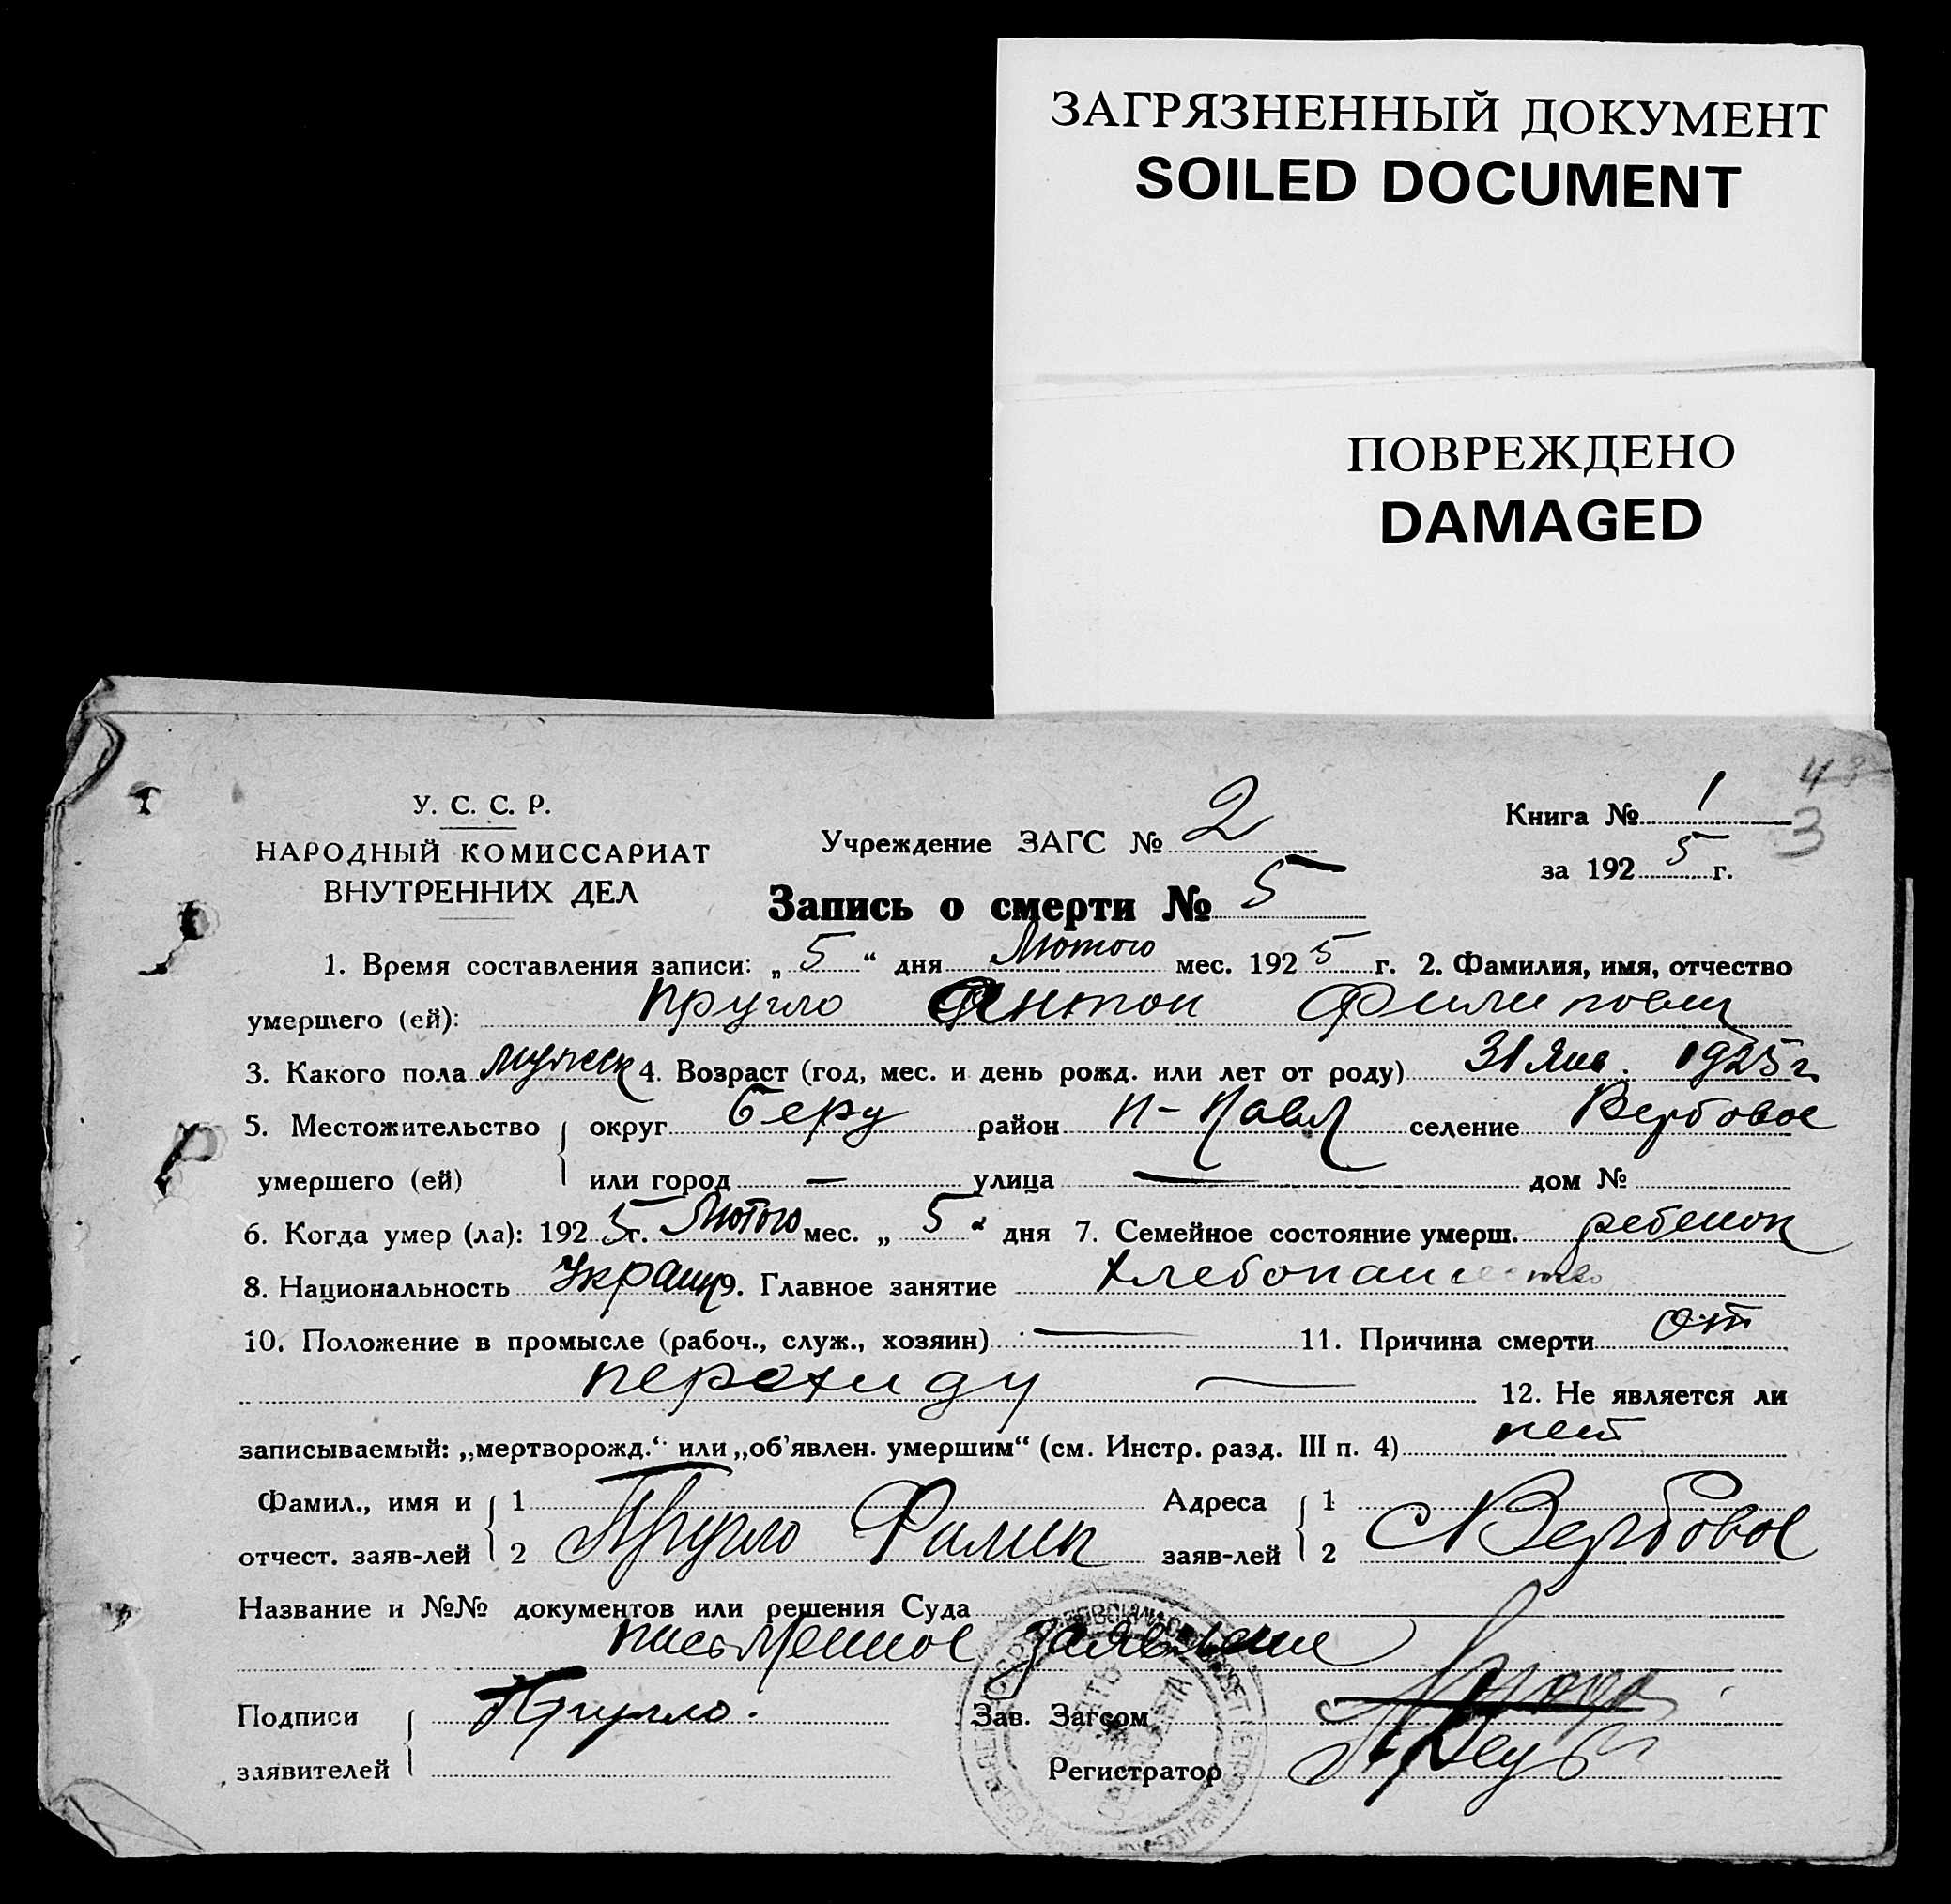 ЗАГРЯЗНЕННЫЙ ДОКУМЕНТ
SOILED DOCUMENT
ПОВРЕЖДЕНО
DAMAGED
У. С. С. Р.
НАРОДНЫЙ КОМИССАРИАТ
ВНУТРЕННИХ ДЕЛ
Учреждение ЗАГС № 2
Книга № 1
3
за 192 5 г.
Запись о смерти № 5
1. Время составления записи: „ 5 “ дня Лютого мес. 192 5 г. 2. Фамилия, имя, отчество
умершего (ей): Пругло Антон Филипович
3. Какого пола мужеск 4. Возраст (год, мес. и день рожд. или лет от роду) 31 Янв. 1925 г
5. Местожительство округ Берд район П-Павл селение Вербовое
умершего (ей) или город — улица — дом №
6. Когда умер (ла): 192 5 г. Лютого мес. „ 5 “ дня 7. Семейное состояние умерш. ребенок
8. Национальность Украин 9. Главное занятие хлебопашество
10. Положение в промысле (рабоч., служ., хозяин) — 11. Причина смерти от
12. Не является ли
записываемый: „мертворожд.“ или „об'явлен. умершим“ (см. Инстр. разд. III п. 4) нет
Фамил., имя и 1 Адреса 1
отчест. заяв-лей 2 Пругло Филип заяв-лей 2 с Вербовое
Название и №№ документов или решения Суда
письменное заявление
Подписи Пругло. Зав. Загсом
заявителей Регистратор